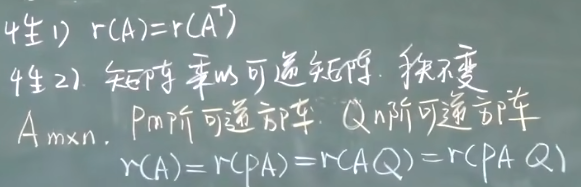 性1) r(A)=r(Aᵀ)
性2). 矩阵乘以可逆矩阵. 秩不变
Am×n. Pm阶可逆方阵. Qn阶可逆方阵
r(A)=r(PA)=r(AQ)=r(PAQ)